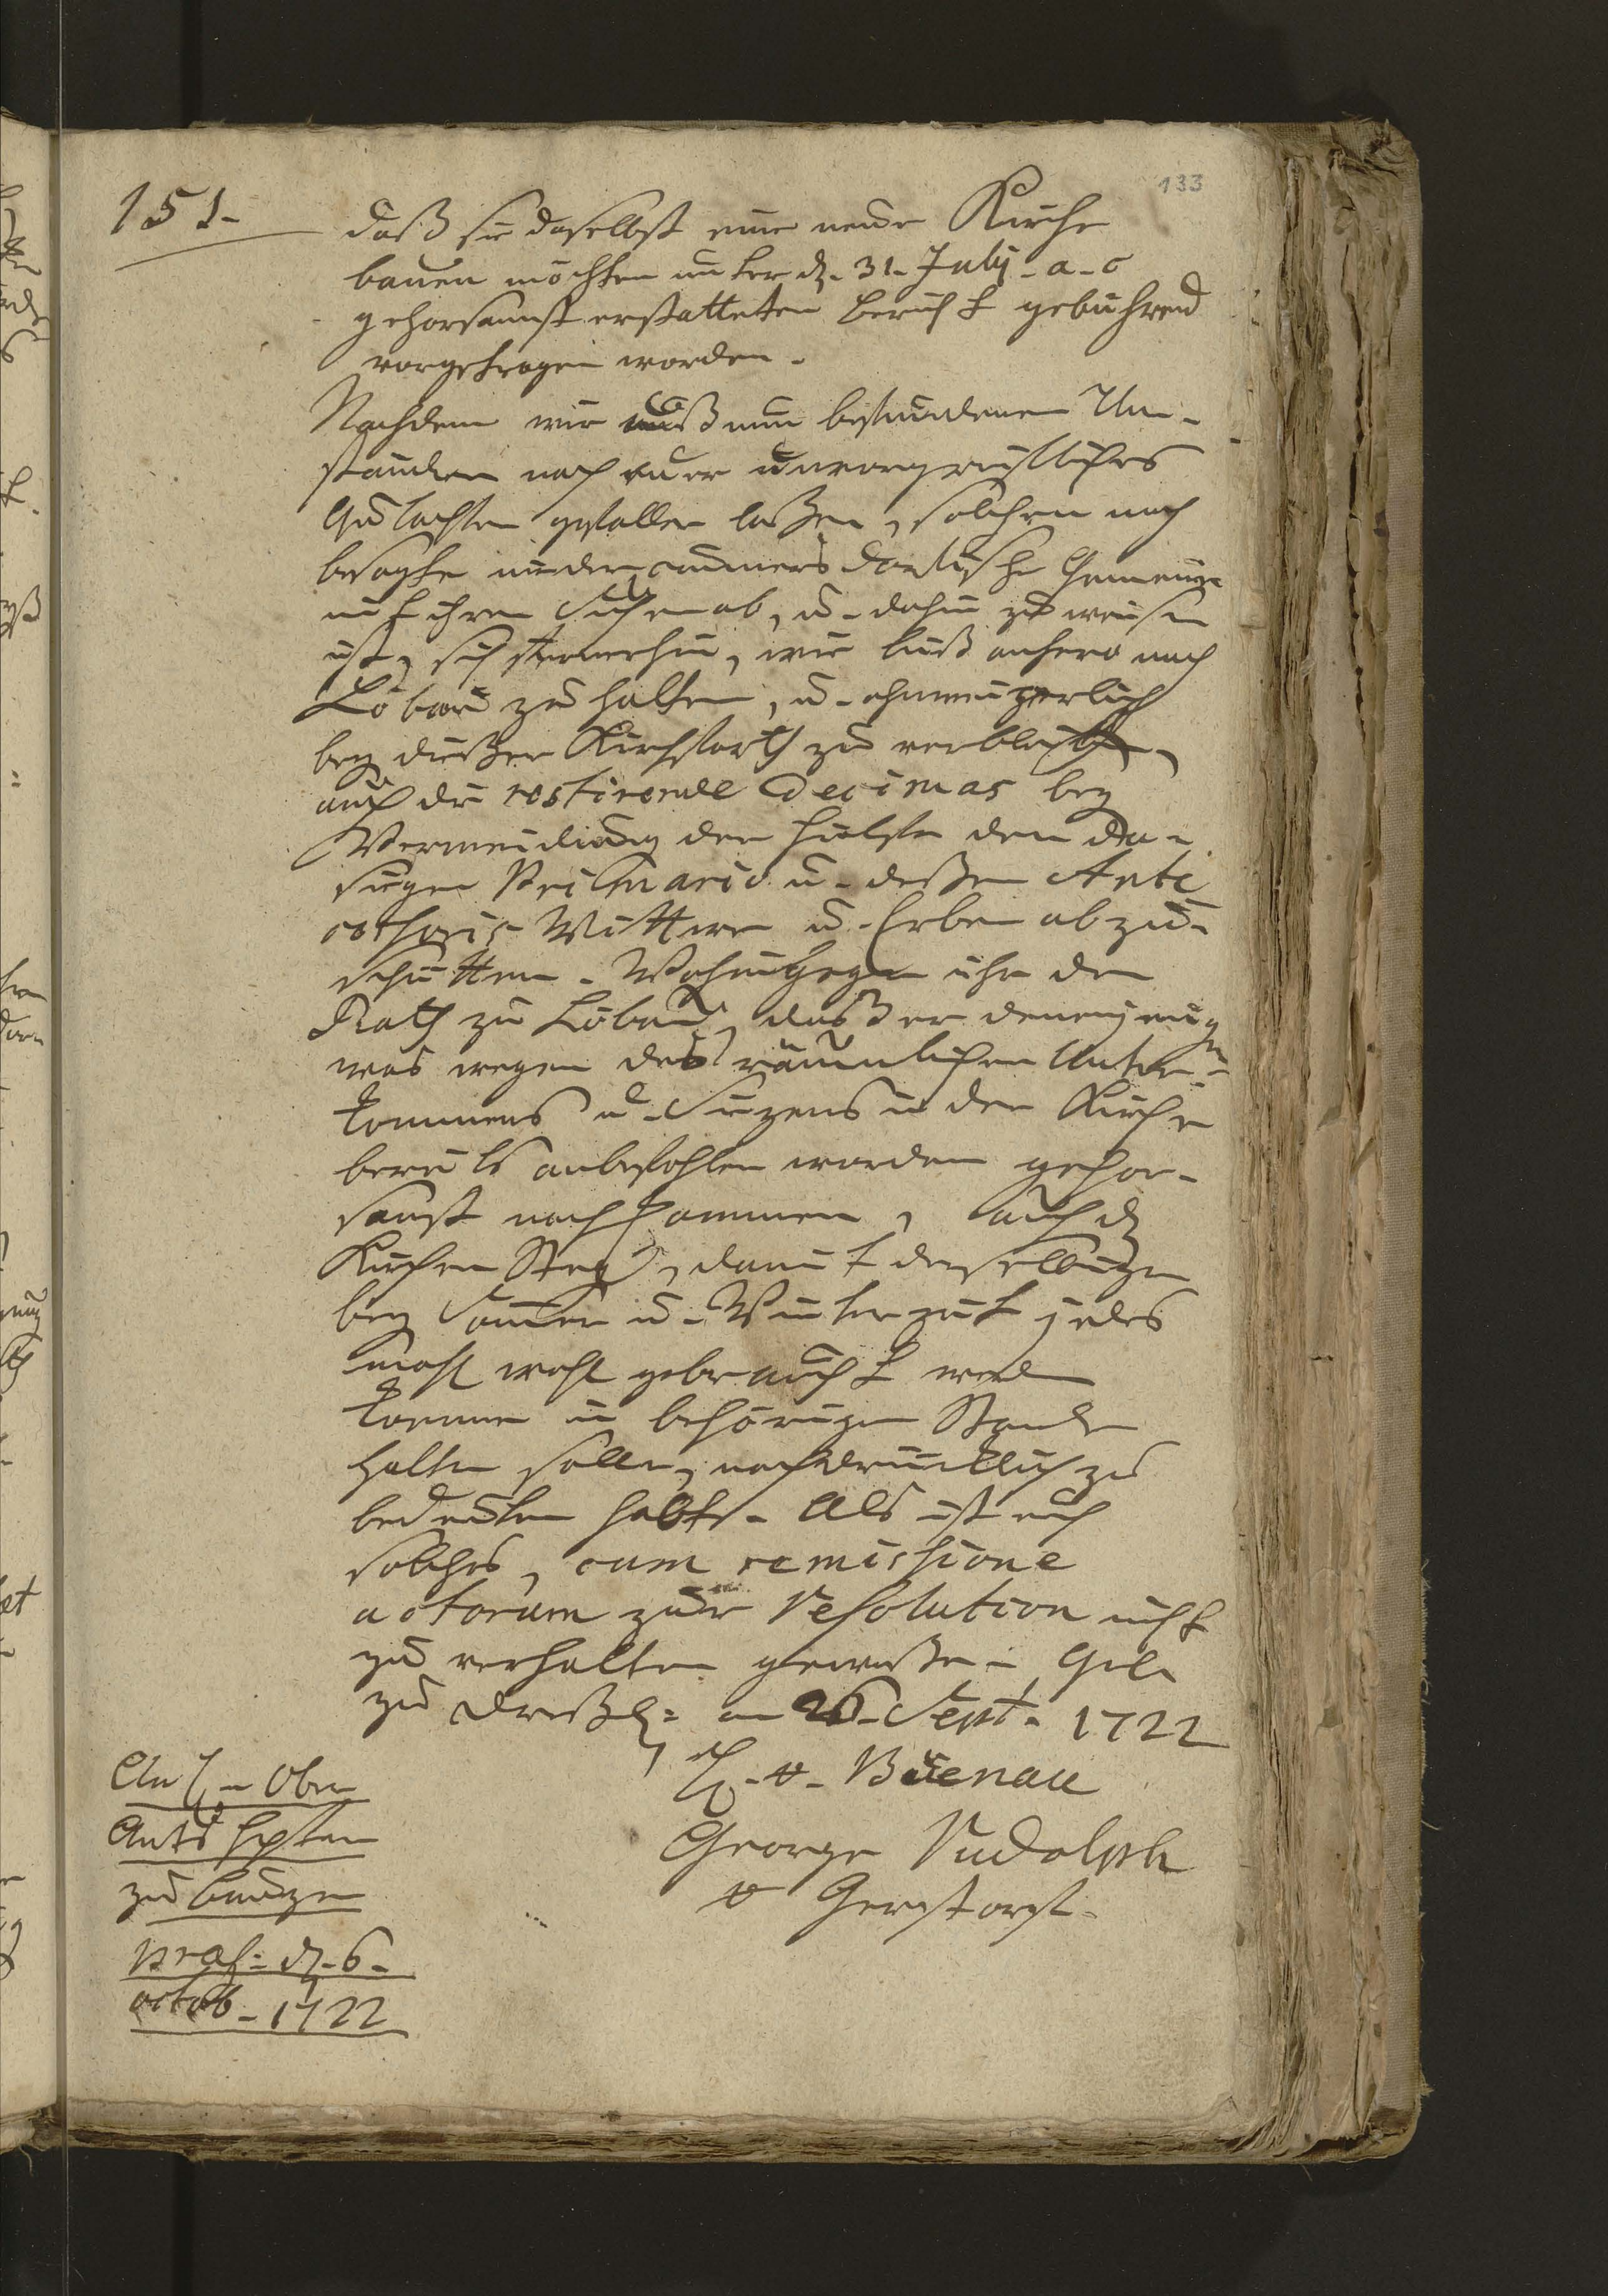 133
151.
daß sie daselbst eine neüe Kirche
bauen möchten unter dn. 31. July. a. c
gehorsammst erstatteten Bericht gebührend
vorgetragen worden.
Nachdem wir es nun befundenen Um-
ständen nach euer unvorgreiffliches
Gutachten gefallen laßen, solchem nach
besagte niedercunnersdorfische Gemeinde
mit ihrem Suchen ab, u. dahin zu weisen
ist, sich fernerhin, wie biß anhero nach
Löbau zu halten, u. ohnweigerlich
bey dießer Kirchfarth zu verbleiben,
auch die restirende Decimas bey
Vermeidung der Hülffe dem da-
sigen Primario u. deßen Ante
cessoris Wittwe u. Erben abzu-
schütten. Wohingegen ihr dem
Rath zu Löbau, daß er demjenigen
was wegen des räumlichen Unter-
kommens u. Sizens in der Kirche
bereits anbefohlen worden gehor-
samst nachkommen, auch dn
Kirchen Steg, damit derselbige
bey Sommer u. Winterzeit jedes
mahl wohl gebraucht werden
könne in behörigen Stande
halten solle, nachdrücklich zu
bedeuten habt. Als ist euch
solches, cum remissione
actorum zur Resolution nicht
zu verhalten geweßen. Geb.
zu Dreßdn. am 26. Sept. 1722
H. v. Büenau
George Rudolph
v Gerstorff.
An H. Ober
Ambts Hptm
zu Bauzen
præs. dn. 6.
octob. 1722